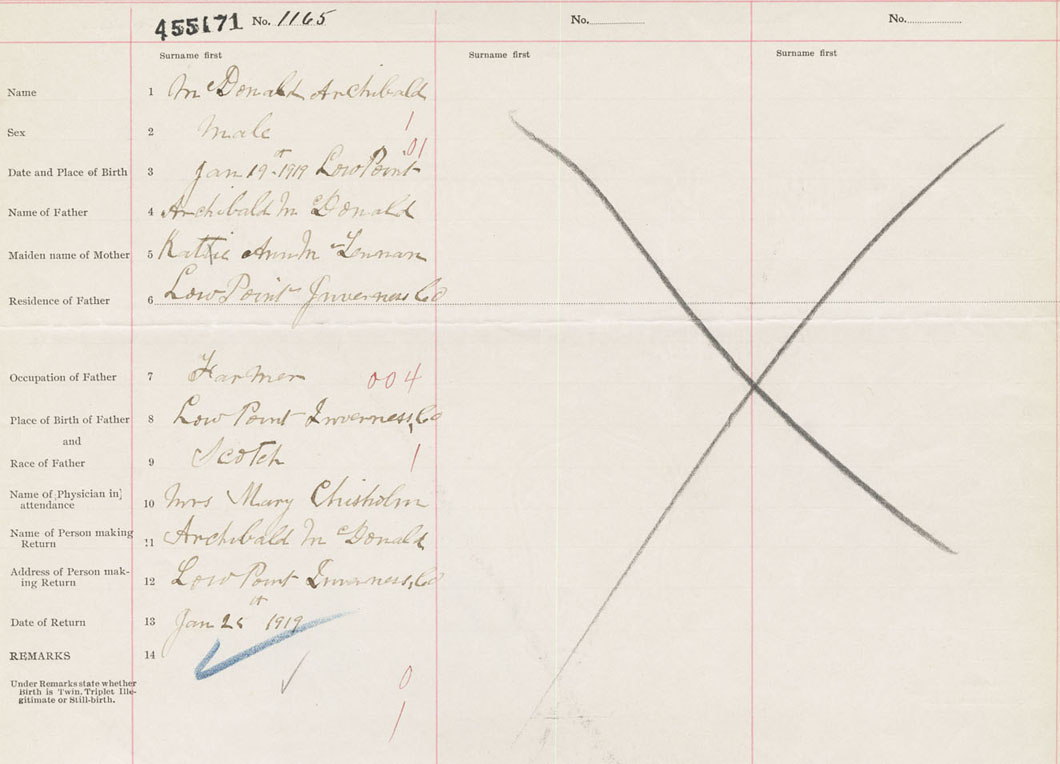 455171 No. 1165 No. No.
Surname first Surname first Surname first
Name 1 McDonald Archibald
Sex 2 Male 1
01
Date and Place of Birth 3 Jan 19th 1919 Low Point
Name of Father 4 Archibald McDonald
Maiden name of Mother 5 Kattie Ann McLennan
Residence of Father 6 Low Point Inverness Co
Occupation of Father 7 Farmer 004
Place of Birth of Father 8 Low Point Inverness, Co
and
Race of Father 9 Scotch 1
Name of Physician in
attendance 10 Mrs Mary Chisholm
Name of Person making
Return 11 Archibald McDonald
Address of Person mak-
ing Return 12 Low Point Inverness, Co
Date of Return 13 Jan th 1919
REMARKS 14
Under Remarks state whether
Birth is Twin, Triplet Ille-
gitimate or Still-birth.
0
1